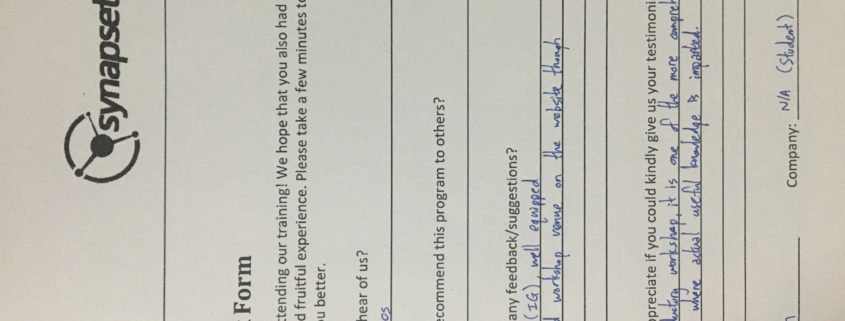 synapset
Form
tending our training! We hope that you also had
d fruitful experience. Please take a few minutes to
u better.
hear of us?
os
ecommend this program to others?
any feedback/suggestions?
(IG), well equipped
workshop venue on the website though
preciate if you could kindly give us your testimoni
workshop, it is one of the more compreh
where actual useful knowledge is imparted.
Company: N/A (Student)